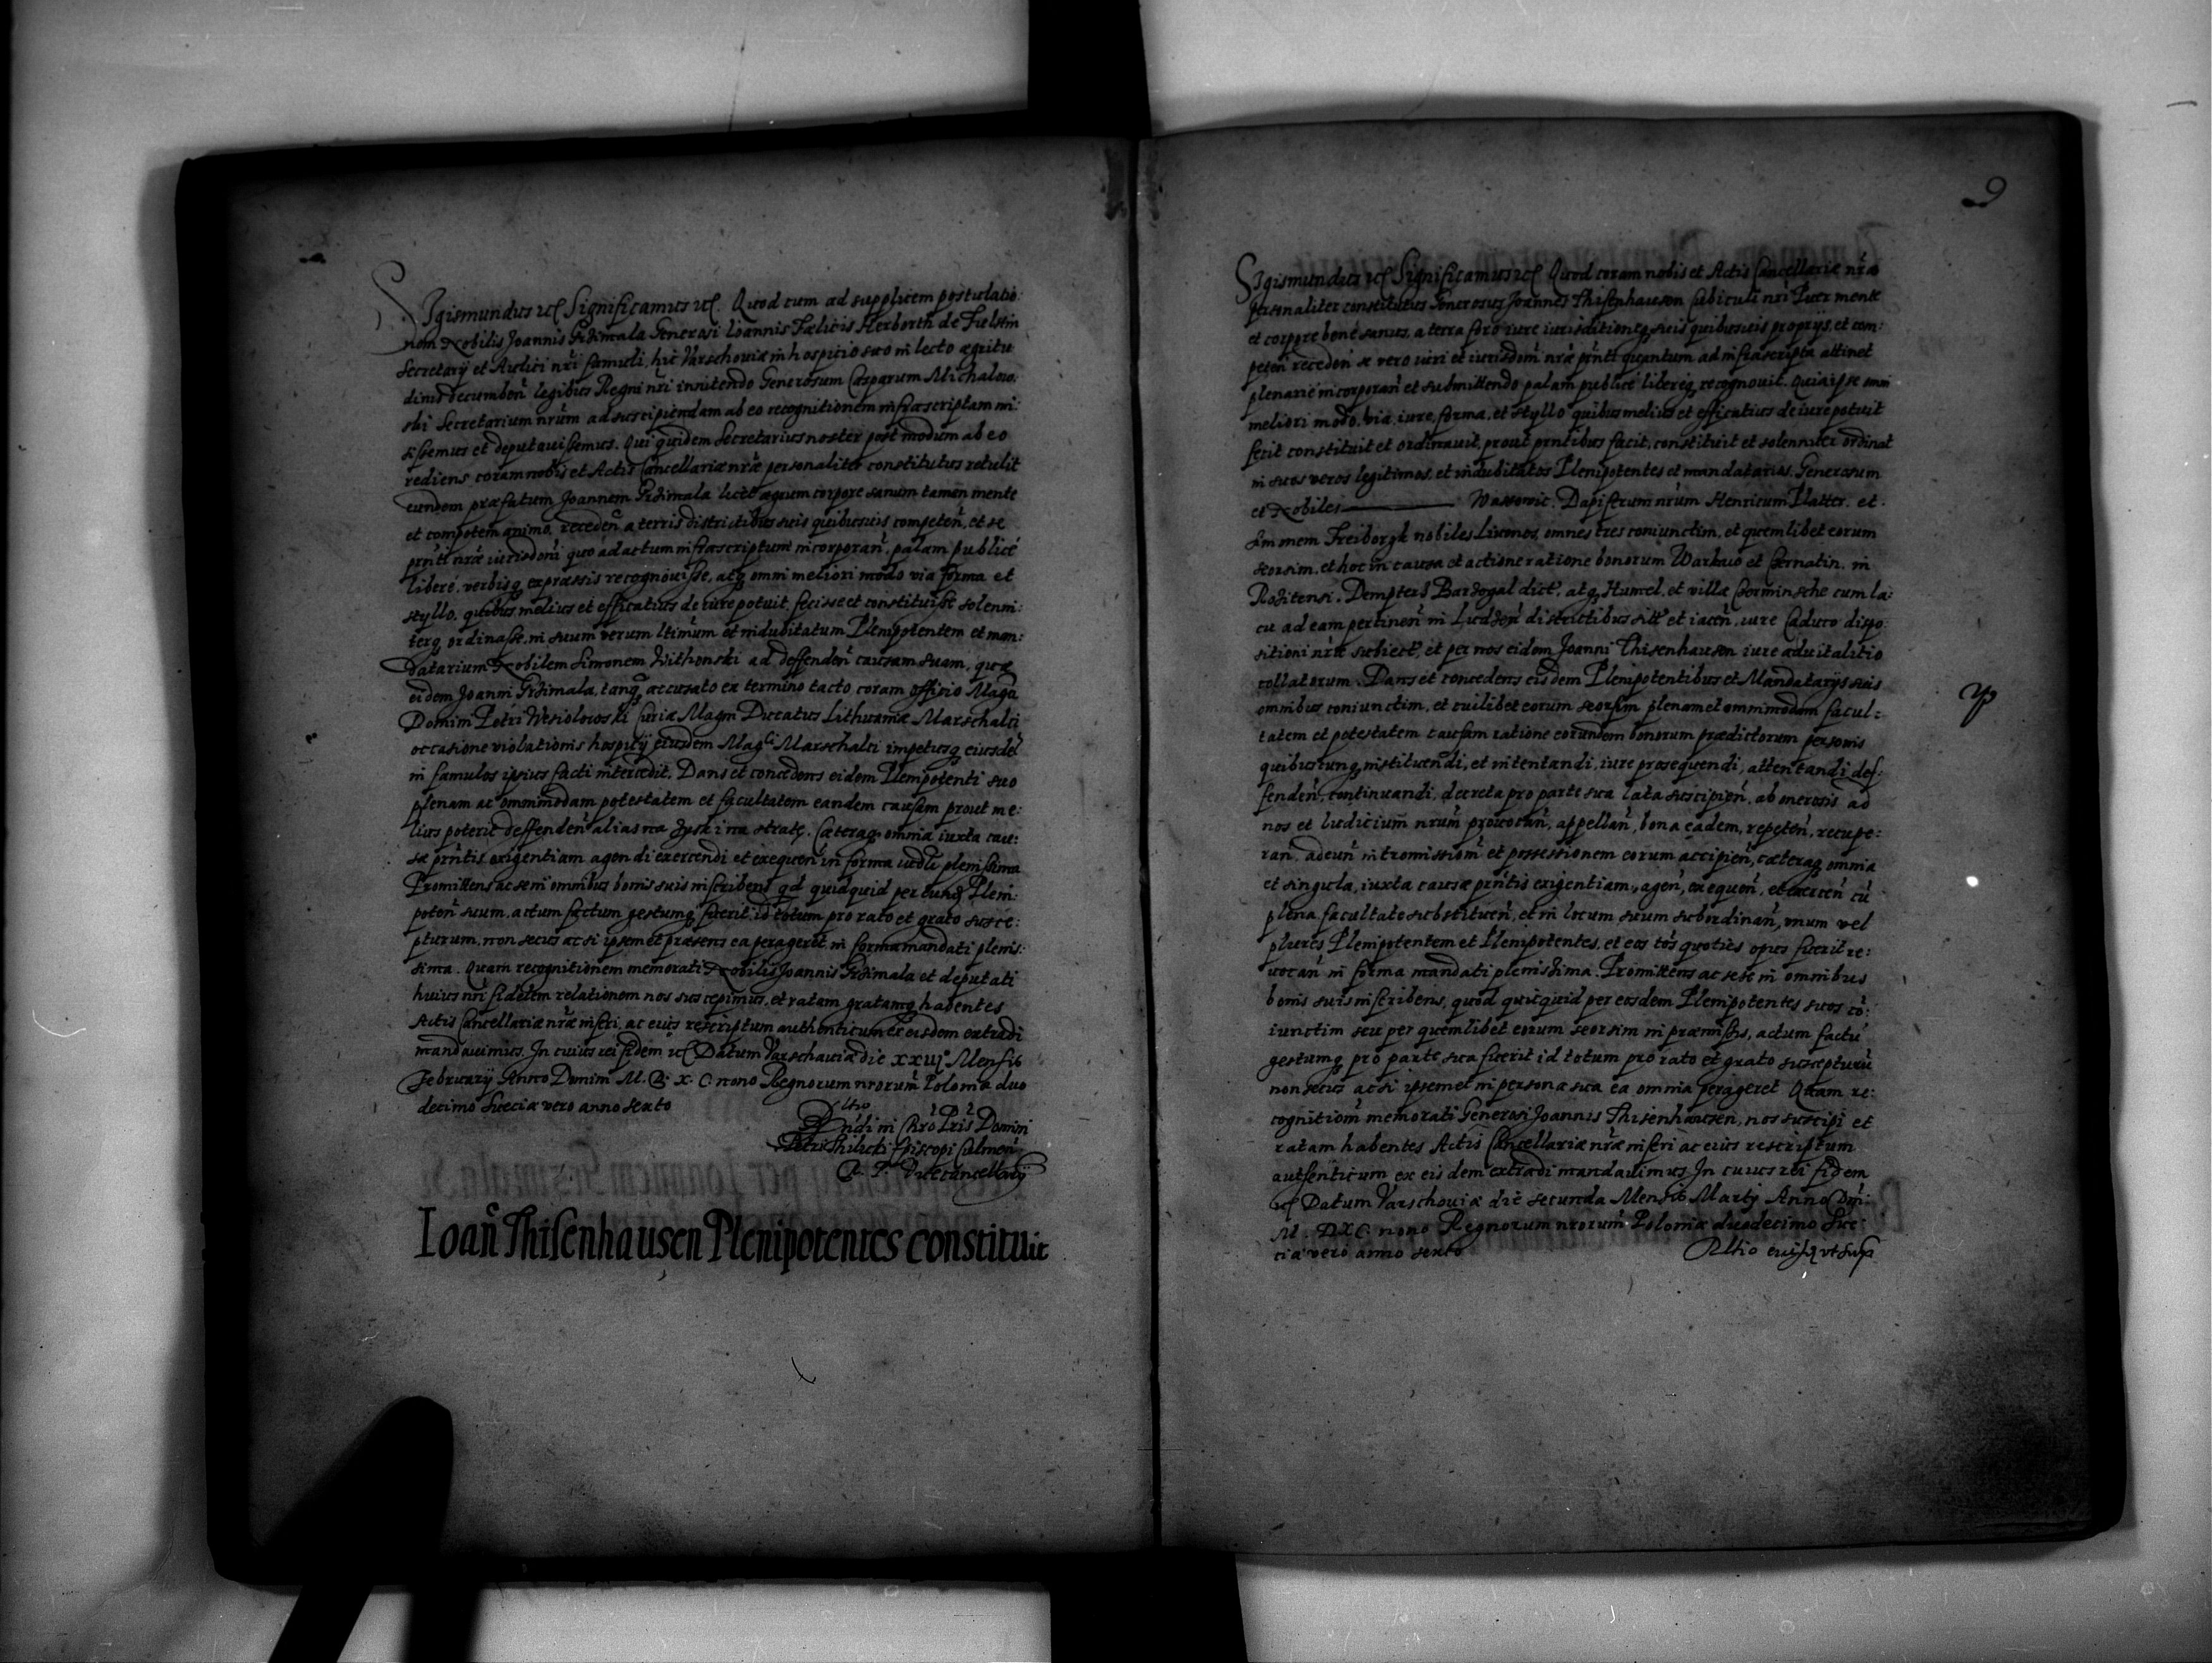 Sigismundus etc Significamus etc. Quod cum ad supplicem postulatio:
nem Nobilis Joannis Grzimala Generosi Ioannis Fælicis Herborth de Fulstin
Secretarÿ et Aulici nr̃i famuli, hic Varschouiæ in hospicio suo in lecto ægritu
dinis decumben̄ legibus Regni nr̃i insistendo Generosum Casparum Michalow:
ski Secretarium nrũm ad suscipiendam ab eo recognitionem infrascriptam mi:
sissemus et deputauissemus. Qui quidem Secretarius noster post modum ab eo
rediens coram nobis et Actis Cancellariæ nræ̃ personaliter constitutus retulit
eundem præfatum Joannem Grzimala licet ægrum corpore sanum tamen mente
et compotem animo, receden̄ a terris districtibus suis quibusuis competen̄, et se
prñti nræ̃ iurisdoni quo ad actum infrascriptum incorporan̄, palam publicè
liberè, verbisq expressis recognouisse, atq omni meliori modo via forma et
styllo, quibus melius et efficatius de iure potuit, fecisse et constituisse solenni:
terq ordinasse, in suum verum ltimũm et indubitatum Plenipotentem et man:
datarium Nobilem Simonem Withonski ad deffenden̄ causam suam, quæ
eidem Joanni Grzimala, tanq accusato ex termino tacto coram officio Magci
Domini Petri Wesiolowski Curiæ Magni Ducatus Lithuaniæ Marschalci
occasione violationis hospitÿ eiusdem Magci Marschalci impetusq eiusdē
in famulos ipsius facti intercedit. Dans et concedens eidem Plenipotenti suo
plenam ac omnimodam potestatem et facultatem eandem causam prout me:
lius poterit deffenden̄ alias na zyski na stratę. Cæteraq omnia iuxta cau:
sæ prñtis exigentiam agendi exercendi et exequen̄ in forma iudicÿ plenissima
Promittens ac sem omnibus bonis suis inscribens qd quidquid per eunq Pleni:
poten̄ suum, actum factum gestumq fuerit id totum pro rato et grato susce:
pturum, non secus ac si ipsemet præsens ea perageret, in forma mandati plenis:
sima. Quam recognitionem memorati Nobilis Joannis Grzimala et deputati
huius nr̃i fidelem relationem nos suscepimus, et ratam gratamq habentes
Actis Cancellariæ nræ̃ inseri, ac eius rescriptum authenticum ex eisdem extradi
mandauimus. In cuius rei fidem etc Datum Varschauiæ die XXIIIJ° Mensis
Februarÿ Anno Domini M. D. X. C. nono Regnorum nrorum̃ Poloniæ duo
decimo Sueciæ vero anno sexto
Rltio
Rndi in Chrō Pris Domini
Petri Thilicki Episcopi Culmen̄
R. P. Vicecancellarÿ
Ioan̄ Thisenhausen Plenipotentes constituit
9
Sigismundus etc Significamus etc Quod coram nobis et Actis Cancellariæ nræ̃
personaliter constitutus Generosus Joannes Thisenhausen Cubiculi nr̃i Puer mente
et corpore bene sanus, a terra foro iure iurisditioneq suis quibusuis proprÿs, et com:
peten̄ receden̄ se vero iuri et iurisdoni nræ̃ prñti quantum ad infrascripta attinet
plenarie incorporan̄ et submittendo palam publicè liberèq recognouit. Quia ipse omni
meliori modo, via, iure, forma, et styllo quibus melius et efficatius de iure potuit
fecit constituit et ordinauit, prout prñtibus facit, constituit et solenniter ordinat
in suos veros legitimos, et indubitatos Plenipotentes et mandatarios. Generosum
et Nobiles Wassowic: Dapiferum nrũm Henricum Platter. et
Emmem Freiborgk nobiles Liuonos, omnes tres coniunctim, et quemlibet eorum
seorsim. et hoc in causa et actione ratione bonorum Warkuo et Czernatin, in
Rositensi. Dempters Barzogal dict, atq Humel, et villæ Czorminsche cum la:
cu ad eam pertinen̄ in Ludzen̄ districtibus sitt et iacen̄, iure Caduco dispo:
sitioni nræ̃ subiect, et per nos eidem Joanni Thisenhausen iure aduitalitio
collatorum. Dans et concedens eisdem Plenipotentibus et Mandatarÿs suis
omnibus coniunctim, et cuilibet eorum seorsim plenam et omnimodam facul:
tatem et potestatem causam ratione eorundem bonorum prædictorum personis
quibuscunq instituendi, et intentandi, iure prosequendi, attentandi def:
fenden̄, continuandi, decreta pro parte sua lata suscipien̄, ab onerosis ad
nos et Iudicium nrũm prouocan̄, appellan̄, bona eadem, repeten̄, recupe:
ran̄, adeun̄ intromissiom̄ et possessionem eorum accipien̄, cæteraq omnia
et singula, iuxta causæ prñtis exigentiam, agen̄, exequen̄, et exercen̄ cū
plena facultate substituen̄, et in locum suum subordinan̄, vnum vel
plures Plenipotentem et Plenipotentes, et eos tos quoties opus fuerit re:
uocan̄ in forma mandati plenissima. Promittens ac sese in omnibus
bonis suis inscribens, quod quicquid per eosdem Plenipotentes suos cō:
iunctim seu per quemlibet eorum seorsim in præmissis, actum factū
gestumq pro parte sua fuerit id totum pro rato et grato suscepturū
non secus ac si ipsemet in persona sua ea omnia perageret Quam re:
cognitiom̄ memorati Generosi Joannis Thisenhausen, nos suscipi et
ratam habentes Actis Cancellariæ nræ̃ inseri ac eius rescriptum
autsenticum ex eisdem extradi mandauimus. In cuius rei fidem
etc Datum Varschouiæ die secunda Mensis Martÿ Anno Dn̄i:
M. DXC. nono Regnorum nrorum̃ Poloniæ duodecimo Sue:
ciæ vero anno sexto
Rltio eiusdē vt supra